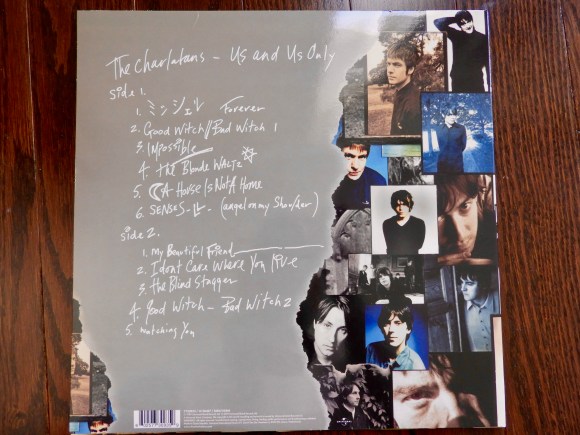 The Charlatans - Us and Us Only
Side 1.
1. ミンシェル Forever
2. Good Witch//Bad Witch 1
3. Impossible
4. The Blonde Waltz
5. A House Is Not A Home
6. Senses - (angel on my Shoulder)
side 2.
1. My Beautiful Friend
2. I dont Care Where You Live
3. the Blind Stagger
4. Good Witch - Bad Witch 2
5. watching You